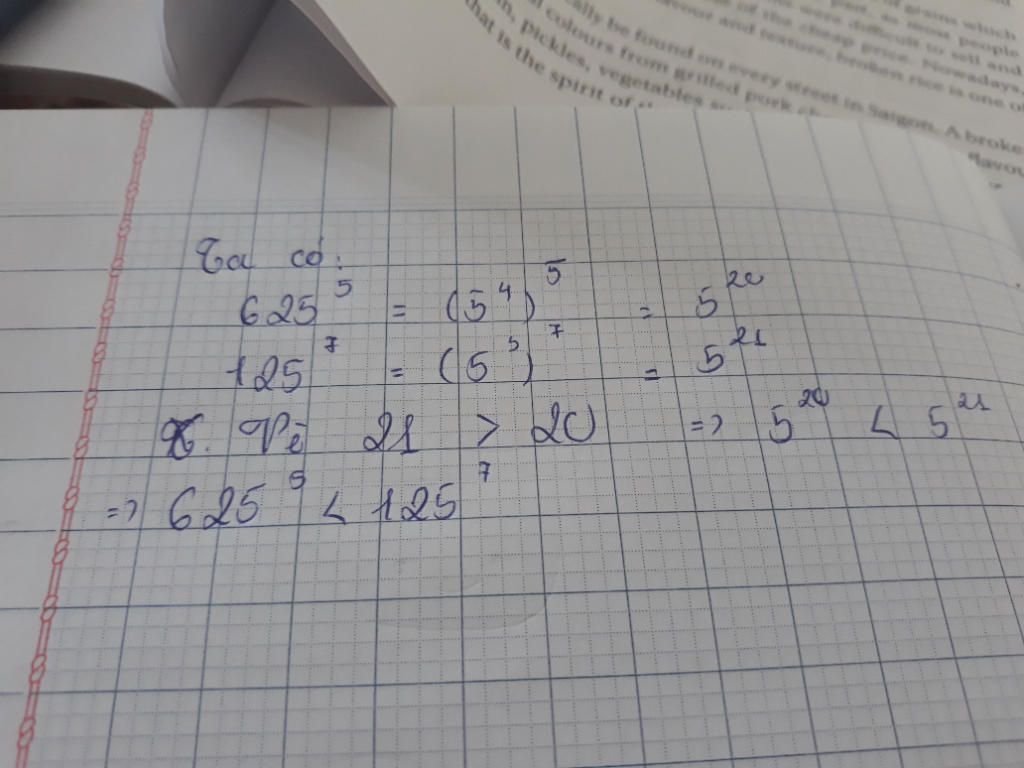 of grains which
past, as most people
were difficult to sell and
of the cheap price. Nowadays,
and texture, broken rice is one of
be found on every street in Saigon. A broke
colours from grilled pork
pickles, vegetables
flavou
that is the spirit of
Ta có:
625⁵ = (5⁴)⁵ = 5²⁰
125⁷ = (5³)⁷ = 5²¹
Vì 21 > 20 => 5²⁰ < 5²¹
=> 625⁵ < 125⁷